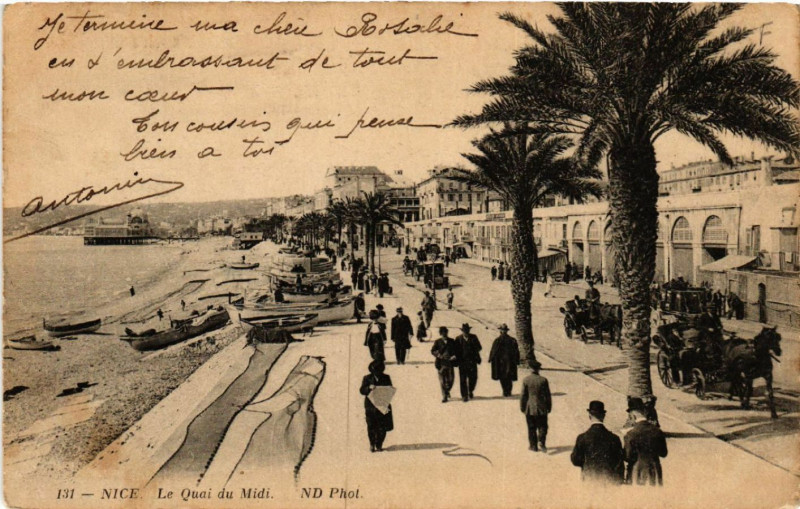 Je termine ma chère Rosalie
en t'embrassant de tout
mon coeur
Ton cousin qui pense
bien a toi
Antonin
131 — NICE. Le Quai du Midi. ND Phot.